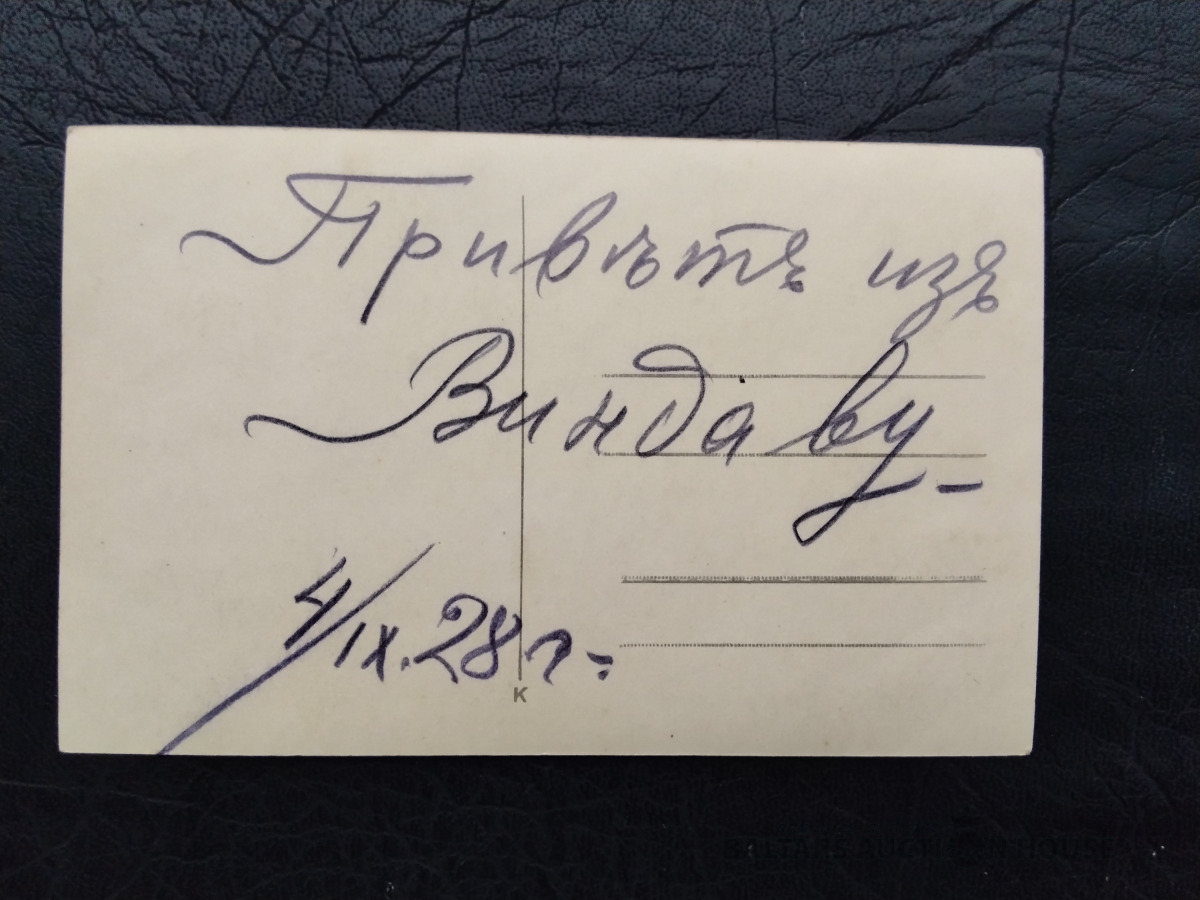 Привѣтъ изъ
Виндаву -
4/IX. 28 г =
K
BALTARS AUCTION HOUSE